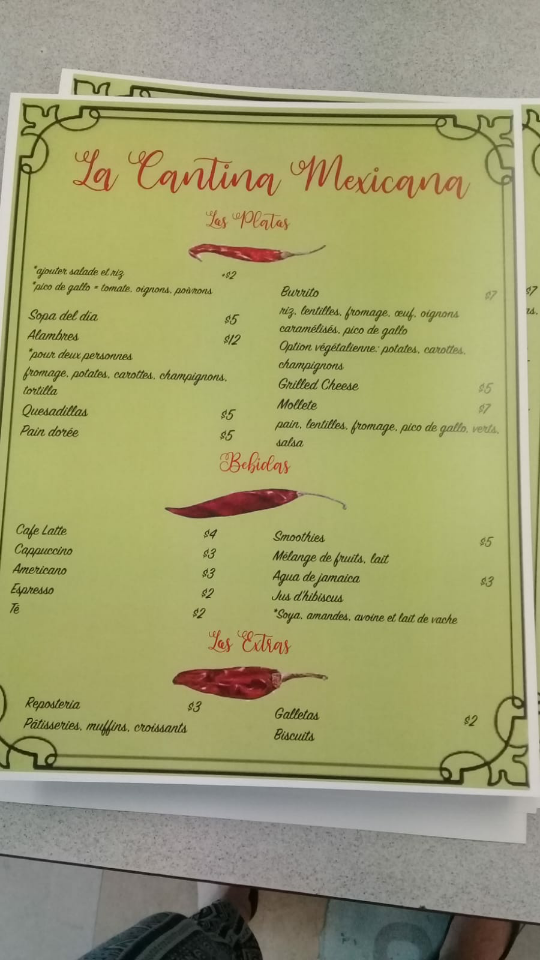 La Cantina Mexicana
Las Platas
*ajouter salade et riz +$2
*pico de gallo = tomate, oignons, poivrons
Sopa del dia $5
Alambres $12
*pour deux personnes
fromage, potates, carottes, champignons,
tortilla
Quesadillas $5
Pain dorée $5
Burrito $7
riz, lentilles, fromage, œuf, oignons
caramélisés, pico de gallo
Option végétalienne: potates, carottes,
champignons
Grilled Cheese $5
Mollete $7
pain, lentilles, fromage, pico de gallo, verts,
salsa
Bebidas
Cafe Latte $4
Cappuccino $3
Americano $3
Espresso $2
Té $2
Smoothies $5
Mélange de fruits, lait
Agua de jamaica $3
Jus d'hibiscus
*Soya, amandes, avoine et lait de vache
Las Extras
Reposteria $3
Pâtisseries, muffins, croissants
Galletas $2
Biscuits
$7